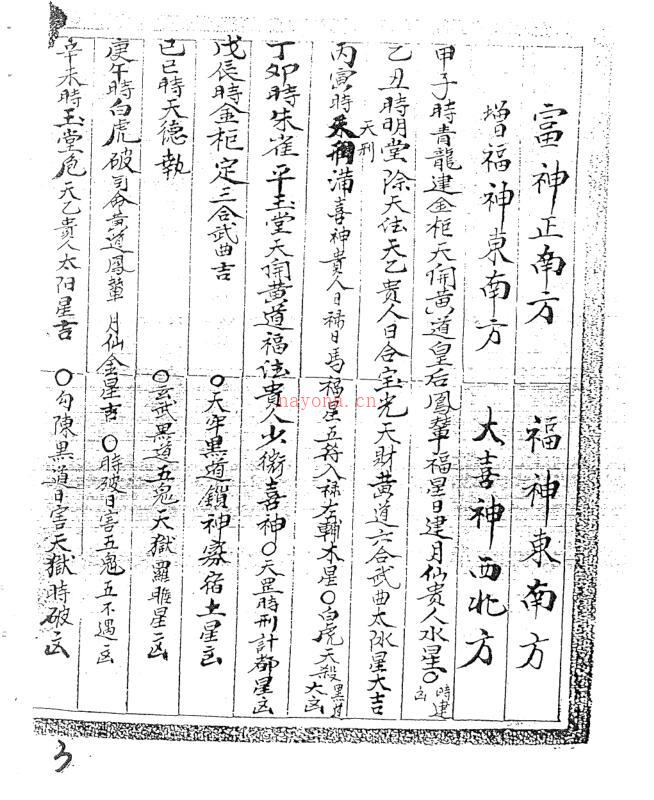 富神正南方 福神東南方
增福神東南方 大喜神西北方
甲子時青龍建金柜天開黄道皇后鳳輦福星日建月仙貴人水星〇時建凶
乙丑時明堂除天法天乙貴人日合宝光天財黄道六合武曲太阴星大吉
天刑
丙寅時天刑满喜神貴人日禄日馬福星五符入禄左輔木星〇白虎天殺黑道大凶
丁卯時朱雀平玉堂天開黄道福法貴人少微喜神〇天罡時刑計都星凶
戊辰時金柜定三合武曲吉 〇天牢黑道鎖神寡宿土星凶
己巳時天德執 〇玄武黑道五鬼天獄羅睺星凶
庚午時白虎破司命黄道鳳輦月仙金星吉〇時破日害五鬼五不遇凶
辛未時玉堂危天乙貴人太阳星吉 〇勾陳黑道日害天獄時破凶
hayona.cn
3